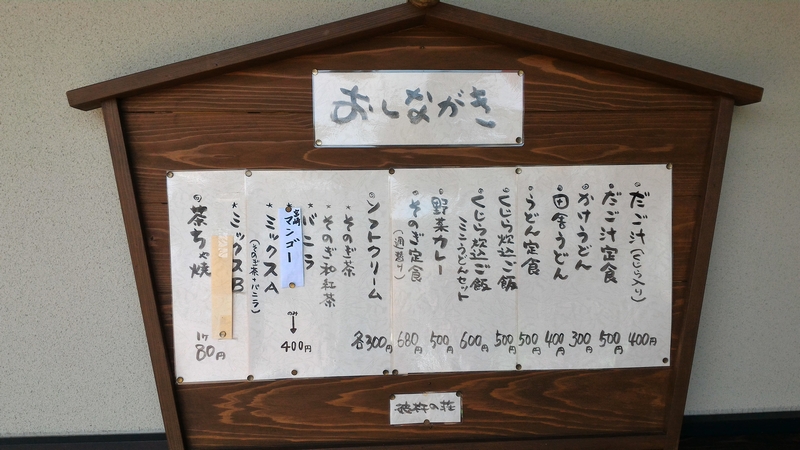 おしながき
だご汁(くじら入り) 400円
だご汁定食 500円
かけうどん 300円
田舎うどん 400円
うどん定食 500円
くじら炊込ご飯 500円
くじら炊込ご飯
ミニうどんセット 600円
野菜カレー 500円
そのぎ定食
(週替り) 680円
ソフトクリーム 各300円
*そのぎ茶
*そのぎ和紅茶
*バニラ
宮崎
マンゴー のみ→400円
*ミックスA
(そのぎ茶+バニラ)
*ミックスB
茶ちゃ焼 1ヶ 80円
の荘